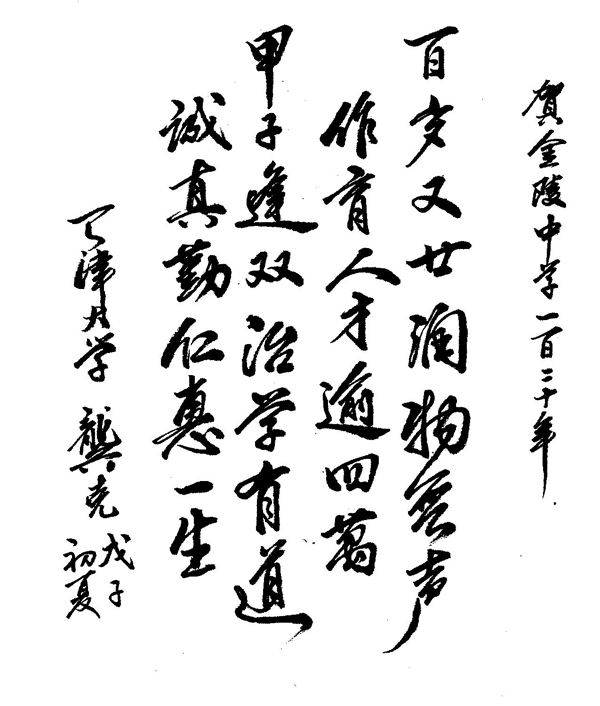 贺金陵中学一百二十年
百岁又廿润物无声
作育人才逾四萬
甲子逢双治学有道
诚真勤仁惠一生
天津大学 龚克 戊子
初夏